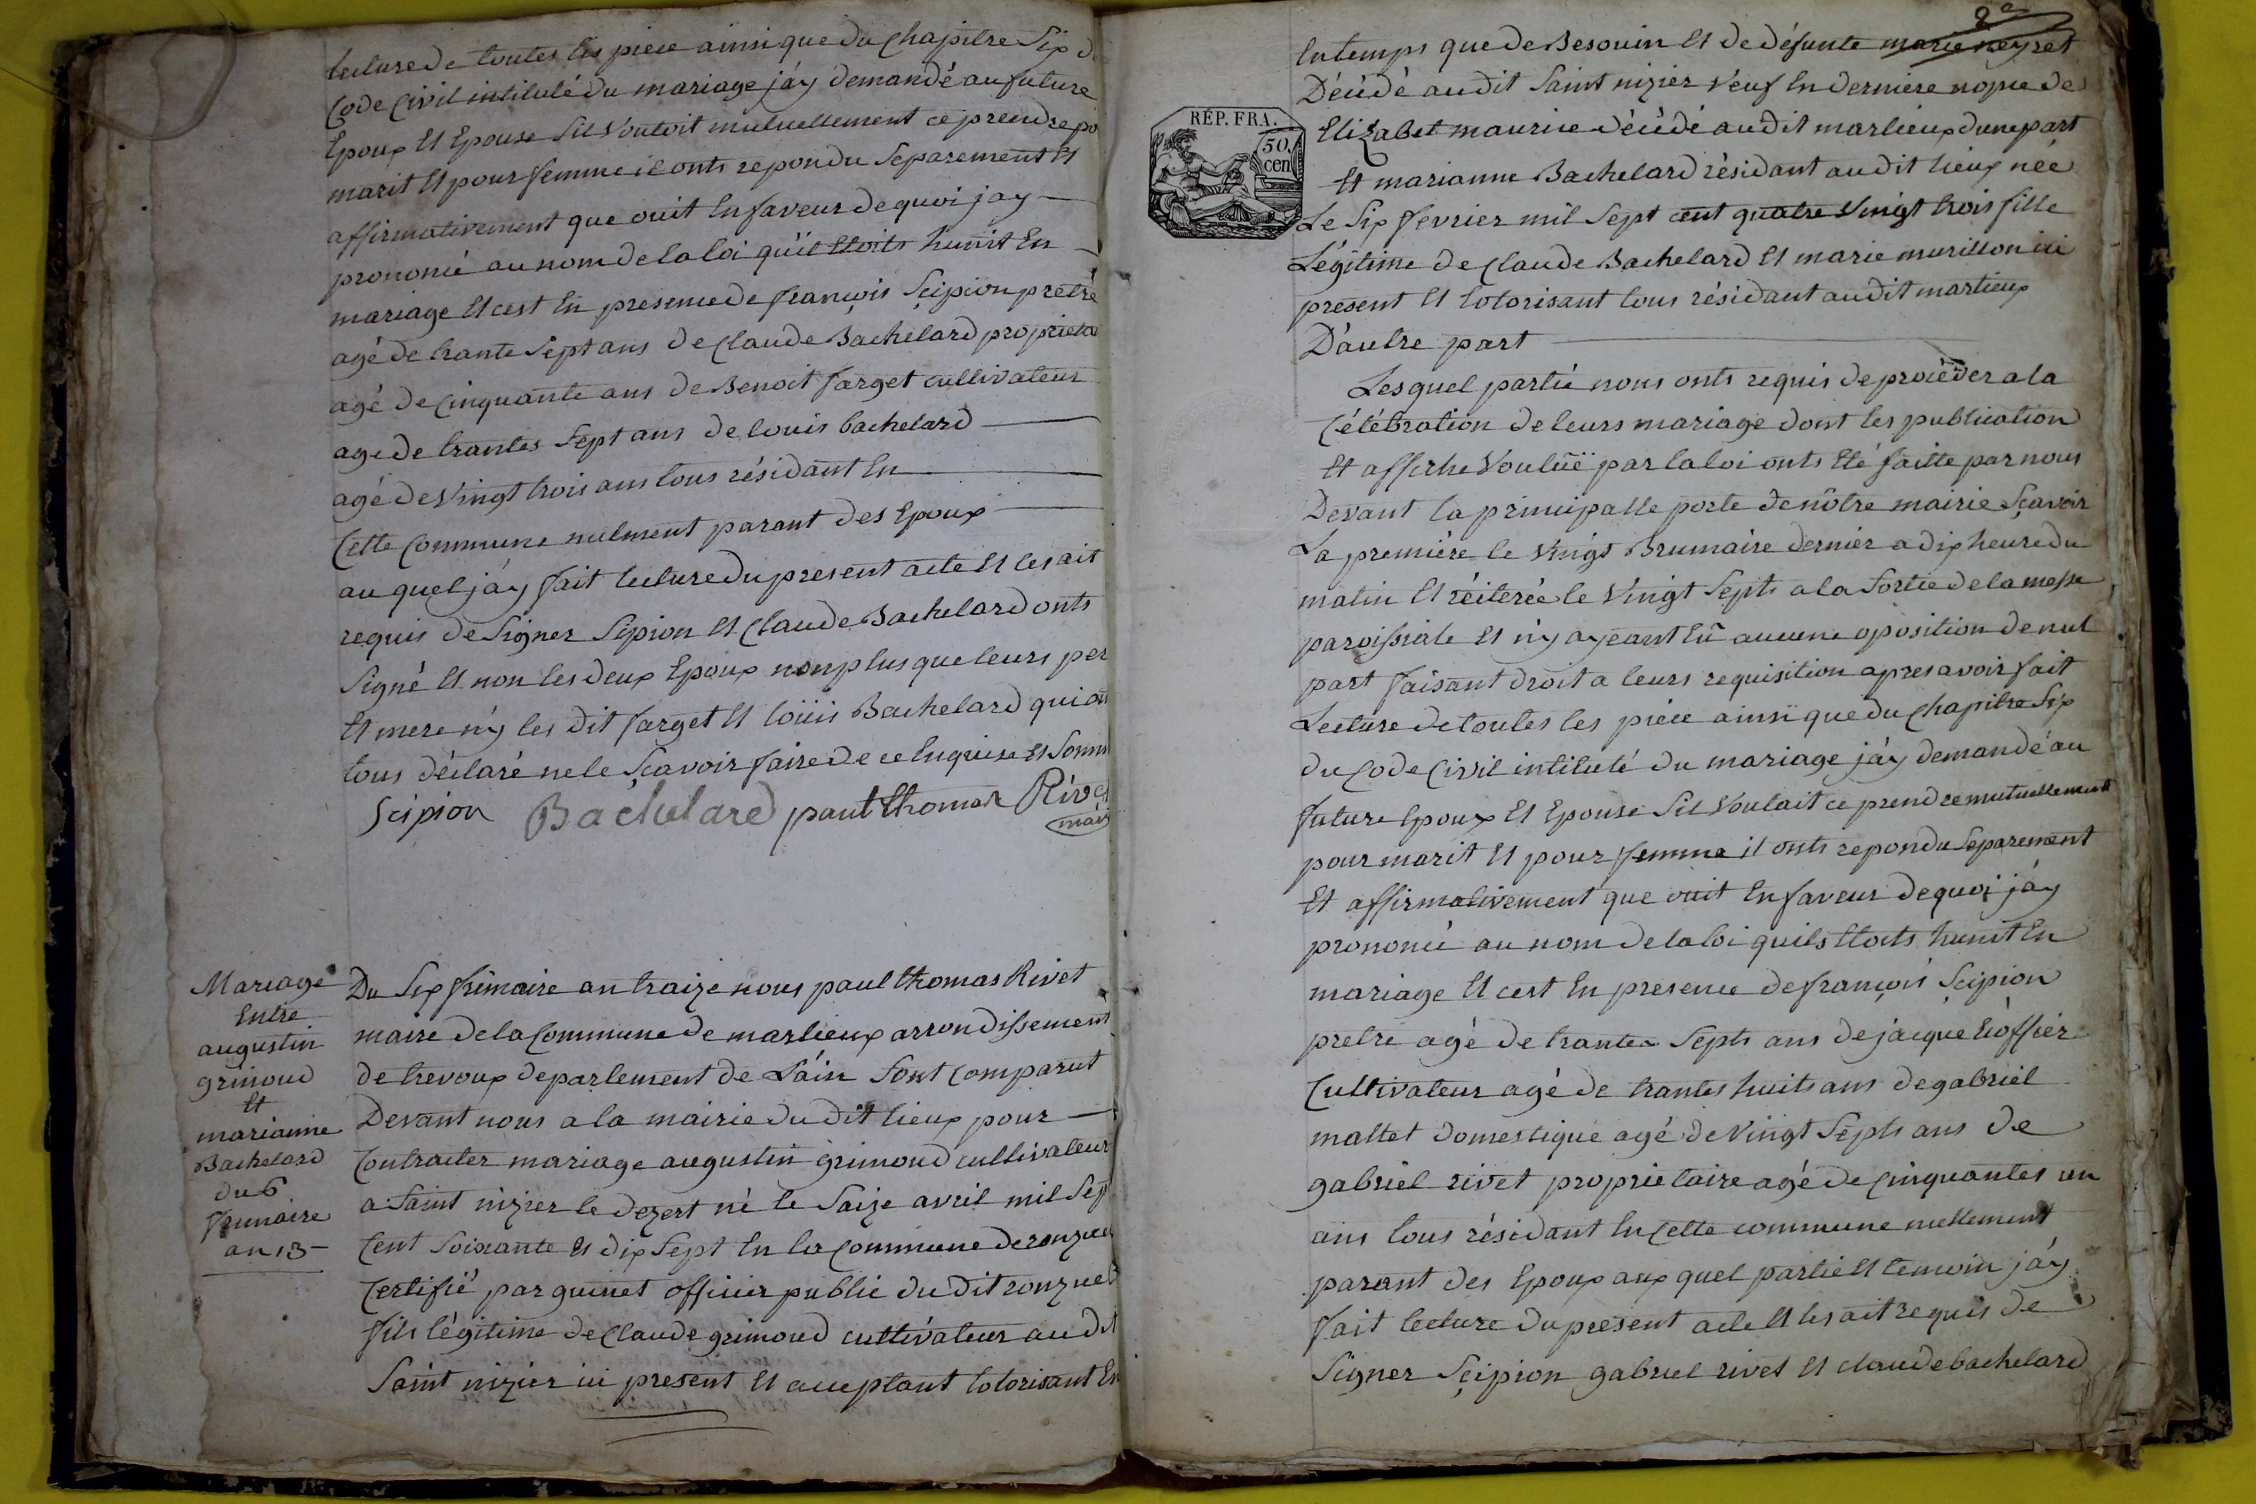 lecture de toutes les piece ainsi que du chapitre Six d
Code Civil intitulé du mariage jáy demandé au future
Epoux Et Epouse Sil Vouloit mutuellement ce prendre po
marit Et pour femme il onts repondu Separement Et
affirmativement que ouit En faveur de quoi jay
prononcé au nom de la loi quil Etoits hunit En
mariage Et cest En presence de françois Scipion prétre
agé de trante Sept ans de Claude Bachelard proprieta
agé de Cinquante ans de Benoit farget cultivateur
age de trantes Sept ans de louis bachelard
agé de Vingt trois ans tous résidant En
Cette Commune nulment parant des Epoux
au quel jáy fait lecture du present acte Et les ait
requis de Signer Sipion Et Claude Bachelard onts
Signé Et non les deux Epoux non plus que leurs per
Et mere ny les dit farget Et loüis Bachelard qui on
tous déclaré ne le Scavoir faire de ce Enquise Et Somm
Scipion Bachelard paul thomas Rivet
maire
Mariage
Entre
augustin
grimoud
Et
marianne
Bachelard
du 6
frimaire
an 13
Du Six frimaire an traize nous paul thomas Rivet
maire de la Commune de marlieux arrondissement
de trevoux departement de Láin Sont Comparut
Devant nous a la mairie du dit lieux pour
Contracter mariage augustin grimoud cultivateur
a Saint nizier le dezert né le Saize avril mil Sep
Cent Soixante Et dix Sept En la Commune de ronzuel
Certifié par guinet officier public du dit ronzuel
fils légitime de Claude grimoud cultivateur au dit
Saint nizier ici present Et acceptant lotorisant En
2e
En temps que de Besouin Et de défunte marie neyret
Décédé au dit Saint nizier Veuf En derniere nopce de
Elizabet maurice décédé au dit marlieux dune part
RÉP. FRA.
50.
cen
Et marianne Bachelard résidant au dit lieux née
Le Six fevrier mil Sept cent quatre Vingt trois fille
Légitime de Claude Bachelard Et marie murillon ici
present Et lotorisant tous résidant au dit marlieux
D'áutre part
Lesquel partié nous onts requis de procéder a la
Célébration de leurs mariage dont les publication
Et affiche Vouluë par la loi onts Eté faitte par nous
Devant la principalle porte de nôtre mairie Sçavoir
La première le Vingt Brumaire dernier a dix heure du
matin Et réiterée le Vingt Septs a la Sortie de la messe
paroissiale Et n'y ayeant Eû aucune oposition de nul
part faisant droit a leurs requisition apres avoir fait
Lecture de toutes les piéce ainsi que du Chapitre Six
du Code Civil intitulé du mariage jáy demandé au
future Epoux Et Epouse Sil Voulait ce prendre mutuellement
pour marit Et pour femme il onts repondu Separement
Et affirmativement que ouit En faveur de quoi jáy
prononcé au nom de la loi quils Etoits hunit En
mariage Et cest En presence de françois Scipion
pretre agé de trantes Septs ans de jacque
Cultivateur agé de trantes huits ans de gabriel
maltet domestique agé de Vingt Septs ans de
gabriel rivet proprietaire agé de Cinquantes un
ans tous résidant En Cette commune nullement
parant des Epoux aux quel partie Et temoin jáy
fait lecture du present acte Et les ait requis de
Signer Scipion gabriel rivet Et claude bachelard